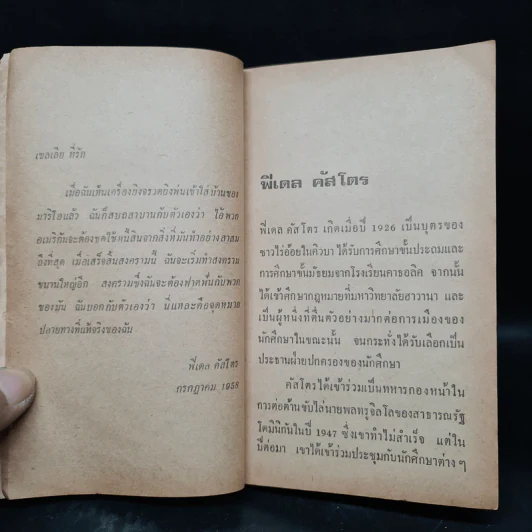 เซลเลีย ที่รัก
เมื่อฉันเห็นเครื่องยิงจรวดยิงพ่นเข้าใส่บ้านของ
มาริโอแล้ว ฉันก็สบถสาบานกับตัวเองว่า ไอ้พวก
อเมริกันจะต้องชดใช้หนี้สินจากสิ่งที่มันทำอย่างสาสม
ถึงที่สุด เมื่อเสร็จสิ้นสงครามนี้ ฉันจะเริ่มทำสงคราม
ขนานใหญ่อีก สงครามซึ่งฉันจะต้องฟาดฟันกับพวก
ของมัน ฉันบอกกับตัวเองว่า นี่แหละคือจุดหมาย
ปลายทางที่แท้จริงของฉัน
ฟิเดล คัสโตร
กรกฎาคม 1958
ฟิเดล คัสโตร
ฟิเดล คัสโตร เกิดเมื่อปี 1926 เป็นบุตรของ
ชาวไร่อ้อยในคิวบา ได้รับการศึกษาขั้นประถมและ
การศึกษาขั้นมัธยมจากโรงเรียนคาธอลิค จากนั้น
ได้เข้าศึกษากฎหมายที่มหาวิทยาลัยฮาวานา และ
เป็นผู้หนึ่งที่ตื่นตัวอย่างมากต่อการเมืองของ
นักศึกษาในขณะนั้น จนกระทั่งได้รับเลือกเป็น
ประธานฝ่ายปกครองของนักศึกษา
คัสโตรได้เข้าร่วมเป็นทหารกองหน้าใน
การต่อต้านขับไล่นายพลทรูจิลโลของสาธารณรัฐ
โดมินิกันในปี 1947 ซึ่งเขาทำไม่สำเร็จ แต่ใน
ปีต่อมา เขาได้เข้าร่วมประชุมกับนักศึกษาต่างๆ